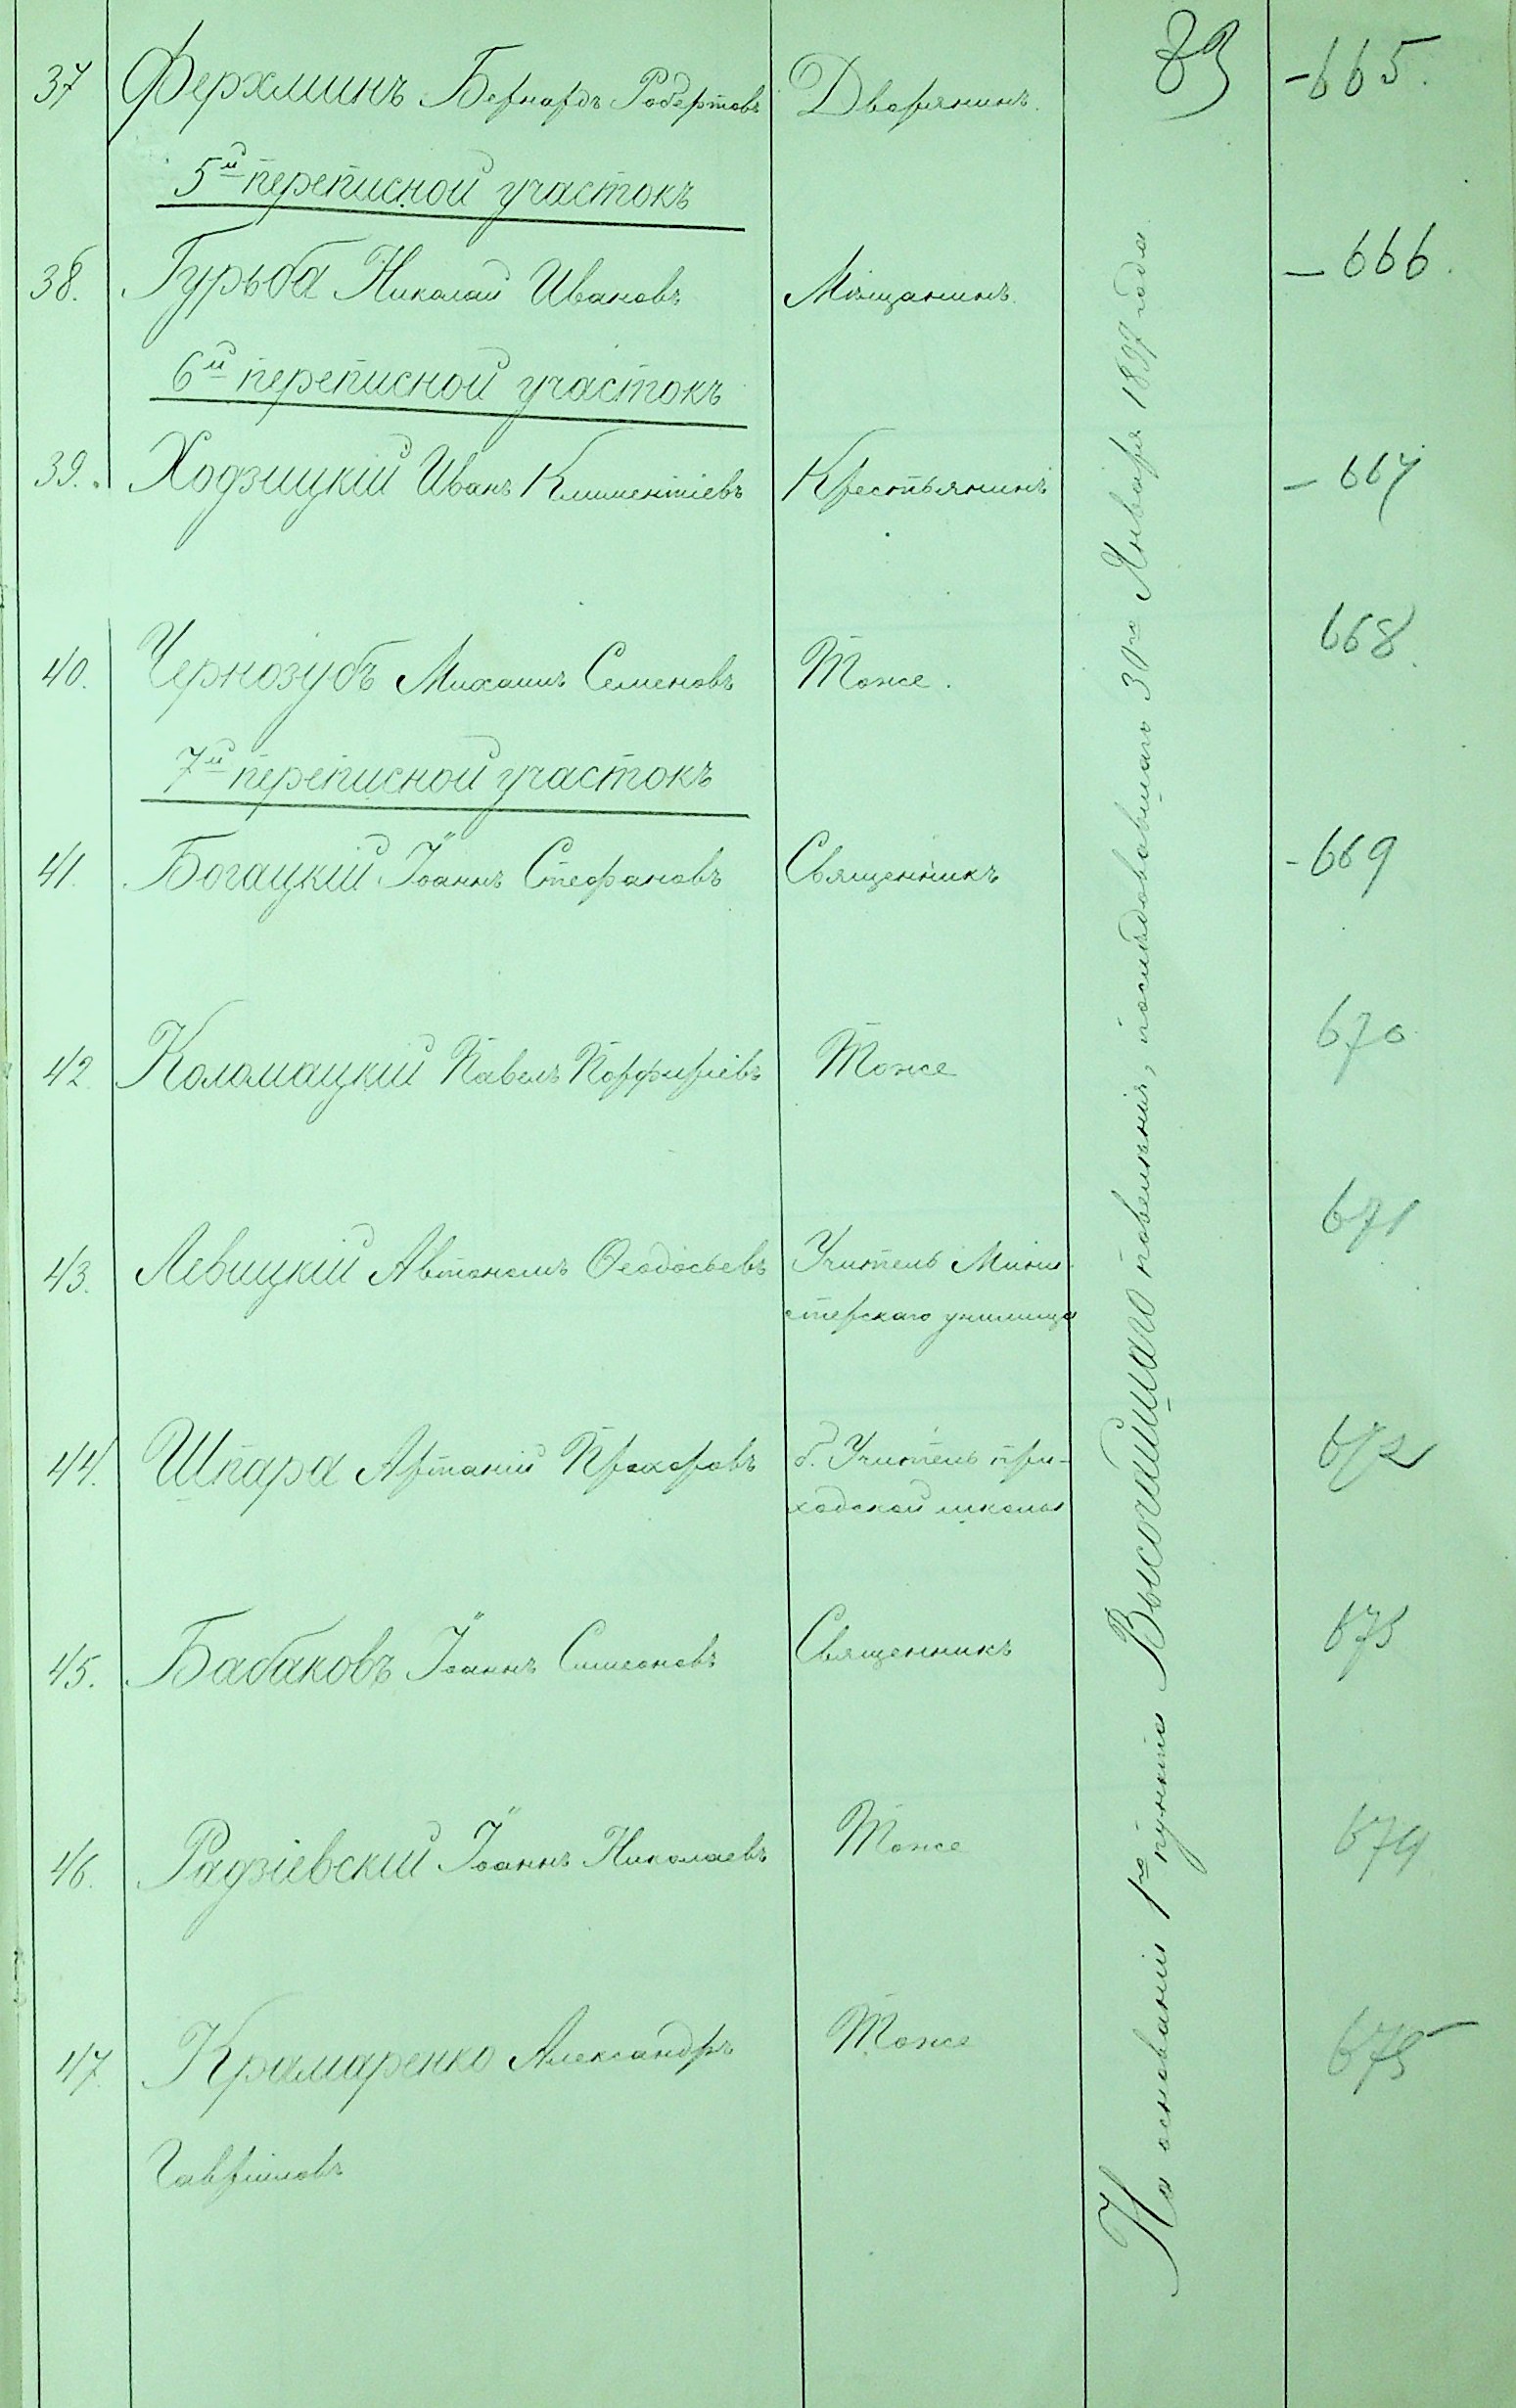 83
37 Ферхминъ Бернардъ Робертовъ Дворянинъ. -665.
5й переписной участокъ
38. Гурьба Николай Ивановъ Мѣщанинъ. -666.
6й переписной участокъ
39. Ходзицкій Иванъ Климентіевъ Крестьянинъ -667
40. Чернозубъ Михаилъ Семеновъ Тоже. 668.
7й переписной участокъ
41. Богацкій Іоаннъ Стефановъ Священникъ -669
42. Коломацкій Павелъ Порфиріевъ Тоже 670
43. Левицкій Автономъ Ѳеодосьевъ Учитель Мини- 671
стерскаго училища
44. Шпара Артаній Прохоровъ б. Учитель при- 672
ходской школы
45. Бабаковъ Іоаннъ Симеоновъ Священникъ 673
46. Радзіевскій Іоаннъ Николаевъ Тоже 674
47. Крамаренко Александръ Тоже 675
Гавріиловъ
На основаніи 1го пункта Высочайшаго повелѣнія, послѣдовавшаго 30го Января 1897 года.